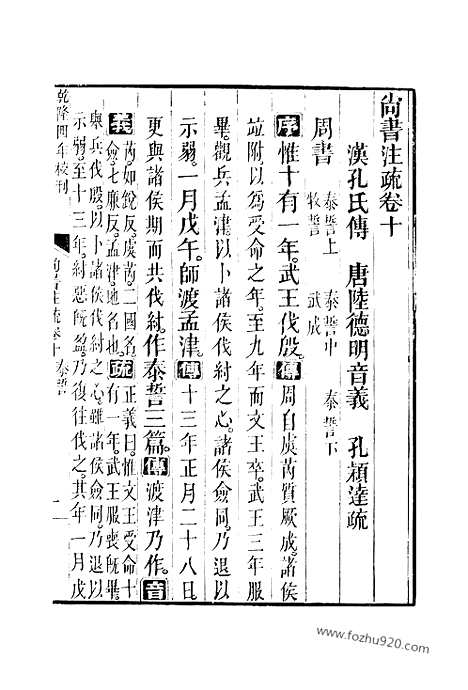 尚書注疏卷十
漢孔氏傳 唐陸德明音義 孔穎達疏
周書
泰誓上 泰誓中 泰誓下
牧誓 武成
序惟十有一年。武王伐殷。傳周自虞芮質厥成。諸侯
竝附以爲受命之年。至九年而文王卒。武王三年服
畢。觀兵孟津。以卜諸侯伐紂之心。諸侯僉同。乃退以
示弱。一月戊午。師渡孟津。傳十三年正月二十八日。
更與諸侯期而共伐紂。作泰誓三篇。傳渡津乃作。音
義芮如銳反。虞芮。二國名。
僉七廉反。孟津。地名也。疏正義曰。惟文王受命十
有一年。武王服喪旣畢。
舉兵伐殷。以卜諸侯伐紂之心。雖諸侯僉同。乃退以
示弱。至十三年。紂惡旣盈。乃復往伐之。其年一月戊
乾隆四年校刊
尚書注疏卷十 泰誓 一
www.fozhu920.com